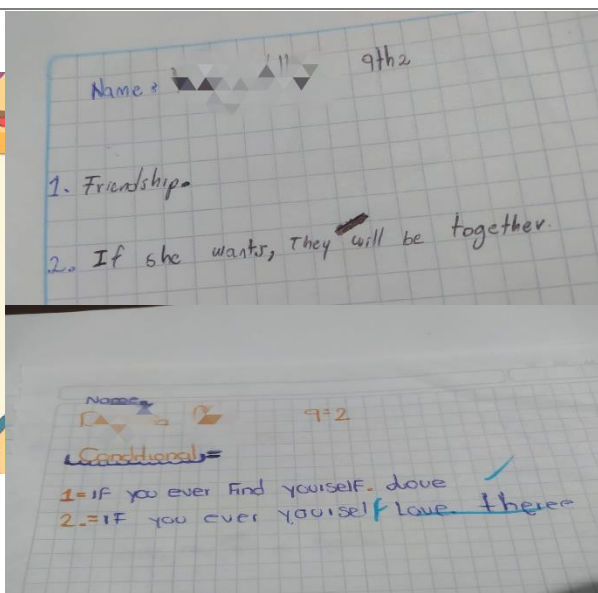 Name: 9th2
1. Friendship.
2. If she wants, They will be together.
Name
9=2
Conditional=
1=IF you ever Find yourself. dove
2.=IF you ever yourself Love there